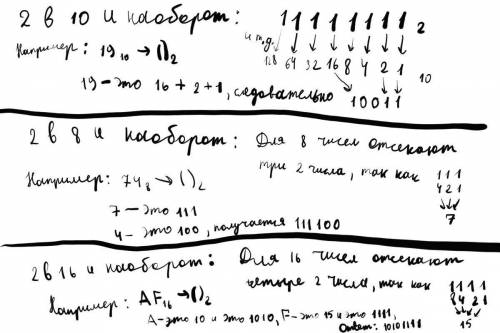 2 в 10 и наоборот: 1 1 1 1 1 1 1 1 2
и т.д.
Например: 19₁₀ → ()₂ 128 64 32 16 8 4 2 1 10
19 - это 16 + 2 + 1, следовательно 10011
2 в 8 и наоборот: Для 8 чисел отсекают
три 2 числа, так как 1 1 1
4 2 1
Например: 74₈ → ()₂ 7
7 - это 111
4 - это 100, получается 111100
2 в 16 и наоборот: Для 16 чисел отсекают
четыре 2 числа, так как 1 1 1 1
8 4 2 1
Например: AF₁₆ → ()₂ 15
А - это 10 и это 1010, F - это 15 и это 1111,
Ответ: 10101111